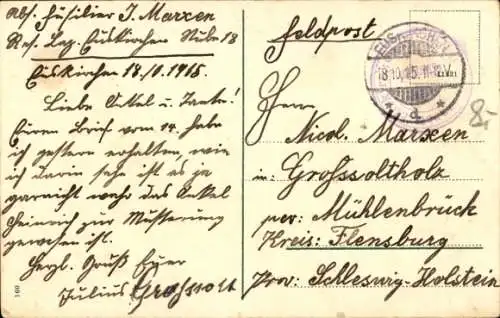 Abs. Füsilier J. Marxen
Res. Laz. Euskirchen Stube 18
Euskirchen 18.10.1915.
Liebe Onkel u. Tante!
Euren Brief vom 14. habe
ich gestern erhalten, wie
ich darin sehe ist es ja
garnicht wahr das Onkel
Heinrich zur Musterung
gewesen ist.
Herzl. Gruß Euer
Julius
160
Feldpost
18.10.15.
* d. *
8-
Herrn
Nicol. Marxen
in: Grosssoltholz
per: Mühlenbrück
Kreis: Flensburg
Prov: Schleswig-Holstein